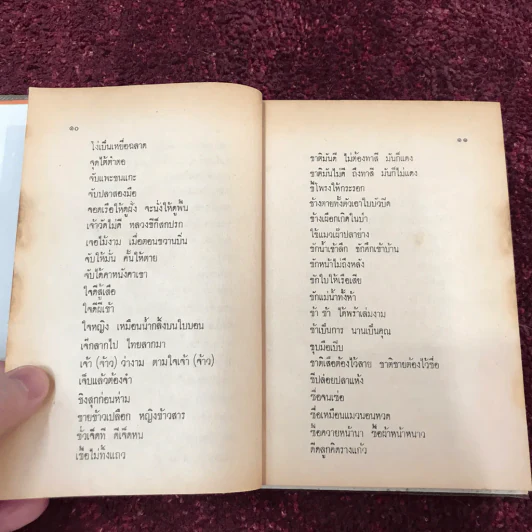 ๑๐
โง่เป็นเหยื่อฉลาด
จุดไต้ตำตอ
จับแพะชนแกะ
จับปลาสองมือ
จอดเรือให้ดูฝั่ง จะนั่งให้ดูพื้น
เจ้าวัดไม่ดี หลวงชีก็สกปรก
เจอไม้งาม เมื่อตอนขวานบิ่น
จับให้มั่น คั้นให้ตาย
จับได้คาหนังคาเขา
ใจดีสู้เสือ
ใจดีผีเข้า
ใจหญิง เหมือนน้ำกลิ้งบนใบบอน
เจ๊กลากไป ไทยลากมา
เจ้า (จ้าว) ว่างาม ตามใจเจ้า (จ้าว)
เจ็บแล้วต้องจำ
ชิงสุกก่อนห่าม
ชายข้าวเปลือก หญิงข้าวสาร
ชั่วเจ็ดที ดีเจ็ดหน
เชื้อไม่ทิ้งแถว
๑๑
ชาติมันดี ไม่ต้องทาสี มันก็แดง
ชาติมันไม่ดี ถึงทาสี มันก็ไม่แดง
ชี้โพรงให้กระรอก
ช้างตายทั้งตัวเอาใบบัวปิด
ช้างเผือกเกิดในป่า
ใช้แมวเฝ้าปลาย่าง
ชักน้ำเข้าลึก ชักศึกเข้าบ้าน
ชักหน้าไม่ถึงหลัง
ชักใบให้เรือเสีย
ชักแม่น้ำทั้งห้า
ช้า ช้า ได้พร้าเล่มงาม
ช้าเป็นการ นานเป็นคุณ
ชุบมือเปิบ
ชาติเสือต้องไว้ลาย ชาติชายต้องไว้ชื่อ
ชีปล่อยปลาแห้ง
ซื่อจนเซ่อ
ซื่อเหมือนแมวนอนหวด
ซื้อควายหน้านา ซื้อผ้าหน้าหนาว
ดีดลูกคิดรางแก้ว